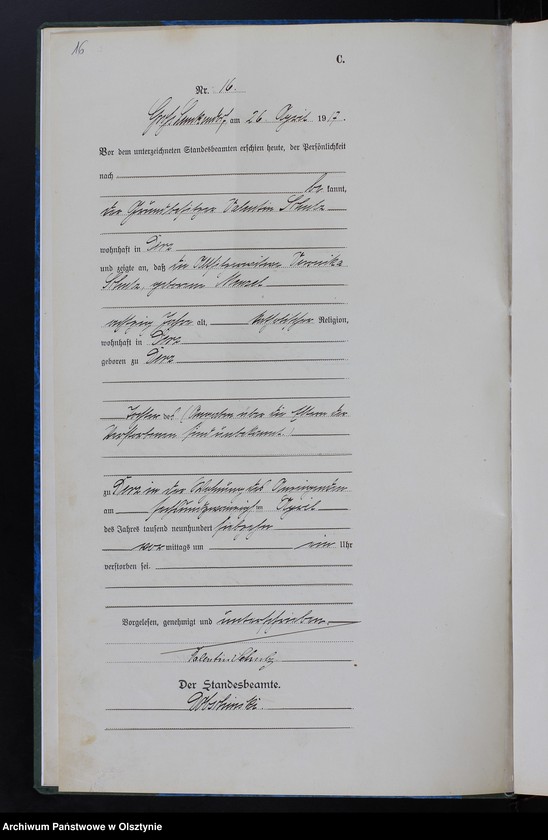 16
C.
Nr. 16.
am 26. April 1917.
Vor dem unterzeichneten Standesbeamten erschien heute, der Persönlichkeit
nach
be kannt,
der Grundbesitzer Valentin Schulz
wohnhaft in Derz
und zeigte an, daß die Veronika
Schulz, geborene
achtzig Jahre alt, katholischer Religion,
wohnhaft in Derz
geboren zu Derz
Tochter (Angaben über die Eltern der
Verstorbenen sind unbekannt.)
zu Derz in der Wohnung des Anzeigenden
am sechsundzwanzig ten April
des Jahres tausend neunhundert siebzehn
vor mittags um ein Uhr
verstorben sei.
Vorgelesen, genehmigt und unterschrieben
Valentin Schulz
Der Standesbeamte.
Archiwum Państwowe w Olsztynie